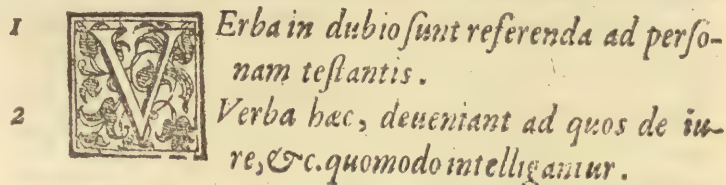 1 VErba in dubio sunt referenda ad perso-
nam testantis.
2 Verba hæc, deueniant ad quos de iu-
re, &c. quomodo intelligantur.